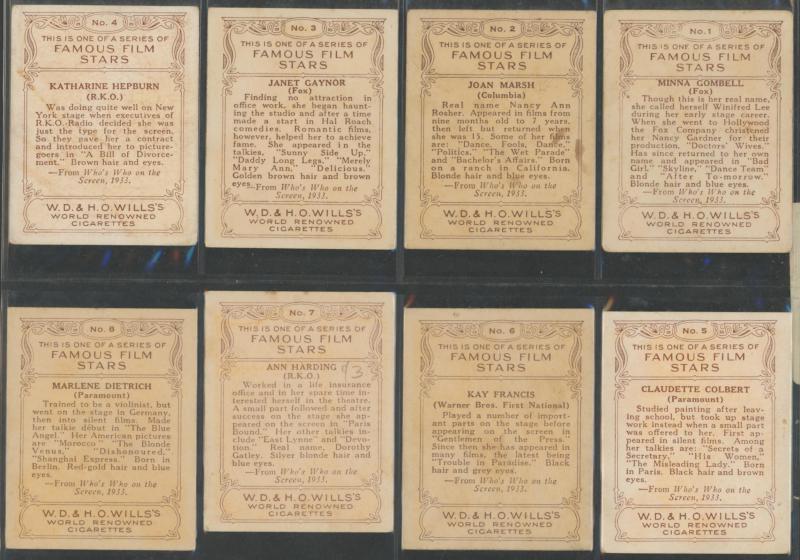 No. 4
THIS IS ONE OF A SERIES OF
FAMOUS FILM
STARS
KATHARINE HEPBURN
(R.K.O.)
Was doing quite well on New
York stage when executives of
R.K.O.-Radio decided she was
just the type for the screen.
So they gave her a contract
and introduced her to picture-
goers in "A Bill of Divorce-
ment." Brown hair and eyes.
—From Who's Who on the
Screen, 1933.
W. D. & H. O. WILLS'S
WORLD RENOWNED
CIGARETTES
No. 3
THIS IS ONE OF A SERIES OF
FAMOUS FILM
STARS
JANET GAYNOR
(Fox)
Finding no attraction in
office work, she began haunt-
ing the studio and after a time
made a start in Hal Roach
comedies. Romantic films,
however, helped her to achieve
fame. She appeared in the
talkies, "Sunny Side Up,"
"Daddy Long Legs," "Merely
Mary Ann," "Delicious."
Golden brown hair and brown
eyes.—From Who's Who on the
Screen, 1933.
W. D. & H. O. WILLS'S
WORLD RENOWNED
CIGARETTES
No. 2
THIS IS ONE OF A SERIES OF
FAMOUS FILM
STARS
JOAN MARSH
(Columbia)
Real name Nancy Ann
Rosher. Appeared in films from
nine months old to 7 years,
then left but returned when
she was 15. Some of her films
are: "Dance, Fools, Dance,"
"Politics," "The Wet Parade"
and "Bachelor's Affairs." Born
on a ranch in California.
Blonde hair and blue eyes.
—From Who's Who on the
Screen, 1933.
W. D. & H. O. WILLS'S
WORLD RENOWNED
CIGARETTES
No. 1
THIS IS ONE OF A SERIES OF
FAMOUS FILM
STARS
MINNA GOMBELL
(Fox)
Though this is her real name,
she called herself Winifred Lee
during her early stage career.
When she went to Hollywood
the Fox Company christened
her Nancy Gardner for their
production, "Doctors' Wives."
Has since returned to her own
name and appeared in "Bad
Girl," "Skyline," "Dance Team"
and "After To-morrow."
Blonde hair and blue eyes.
—From Who's Who on the
Screen, 1933.
W. D. & H. O. WILLS'S
WORLD RENOWNED
CIGARETTES
No. 8
THIS IS ONE OF A SERIES OF
FAMOUS FILM
STARS
MARLENE DIETRICH
(Paramount)
Trained to be a violinist, but
went on the stage in Germany,
then into silent films. Made
her talkie début in "The Blue
Angel." Her American pictures
are "Morocco" "The Blonde
Venus," "Dishonoured,"
"Shanghai Express." Born in
Berlin. Red-gold hair and blue
eyes.
—From Who's Who on the
Screen, 1933.
W. D. & H. O. WILLS'S
WORLD RENOWNED
CIGARETTES
No. 7
THIS IS ONE OF A SERIES OF
FAMOUS FILM
STARS
ANN HARDING
(R.K.O.)
Worked in a life insurance
office and in her spare time in-
terested herself in the theatre.
A small part followed and after
success on the stage she ap-
peared on the screen in "Paris
Bound." Her other talkies in-
clude "East Lynne" and "Devo-
tion." Real name, Dorothy
Gatley. Silver blonde hair and
blue eyes.
—From Who's Who on the
Screen, 1933.
W. D. & H. O. WILLS'S
WORLD RENOWNED
CIGARETTES
No. 6
THIS IS ONE OF A SERIES OF
FAMOUS FILM
STARS
KAY FRANCIS
(Warner Bros. First National)
Played a number of import-
ant parts on the stage before
appearing on the screen in
"Gentlemen of the Press."
Since then she has appeared in
many films, the latest being
"Trouble in Paradise." Black
hair and grey eyes.
—From Who's Who on the
Screen, 1933.
W. D. & H. O. WILLS'S
WORLD RENOWNED
CIGARETTES
No. 5
THIS IS ONE OF A SERIES OF
FAMOUS FILM
STARS
CLAUDETTE COLBERT
(Paramount)
Studied painting after leav-
ing school, but took up stage
work instead when a small part
was offered to her. First ap-
peared in silent films. Among
her talkies are: "Secrets of a
Secretary," "His Women,"
"The Misleading Lady." Born
in Paris. Black hair and brown
eyes.
—From Who's Who on the
Screen, 1933.
W. D. & H. O. WILLS'S
WORLD RENOWNED
CIGARETTES